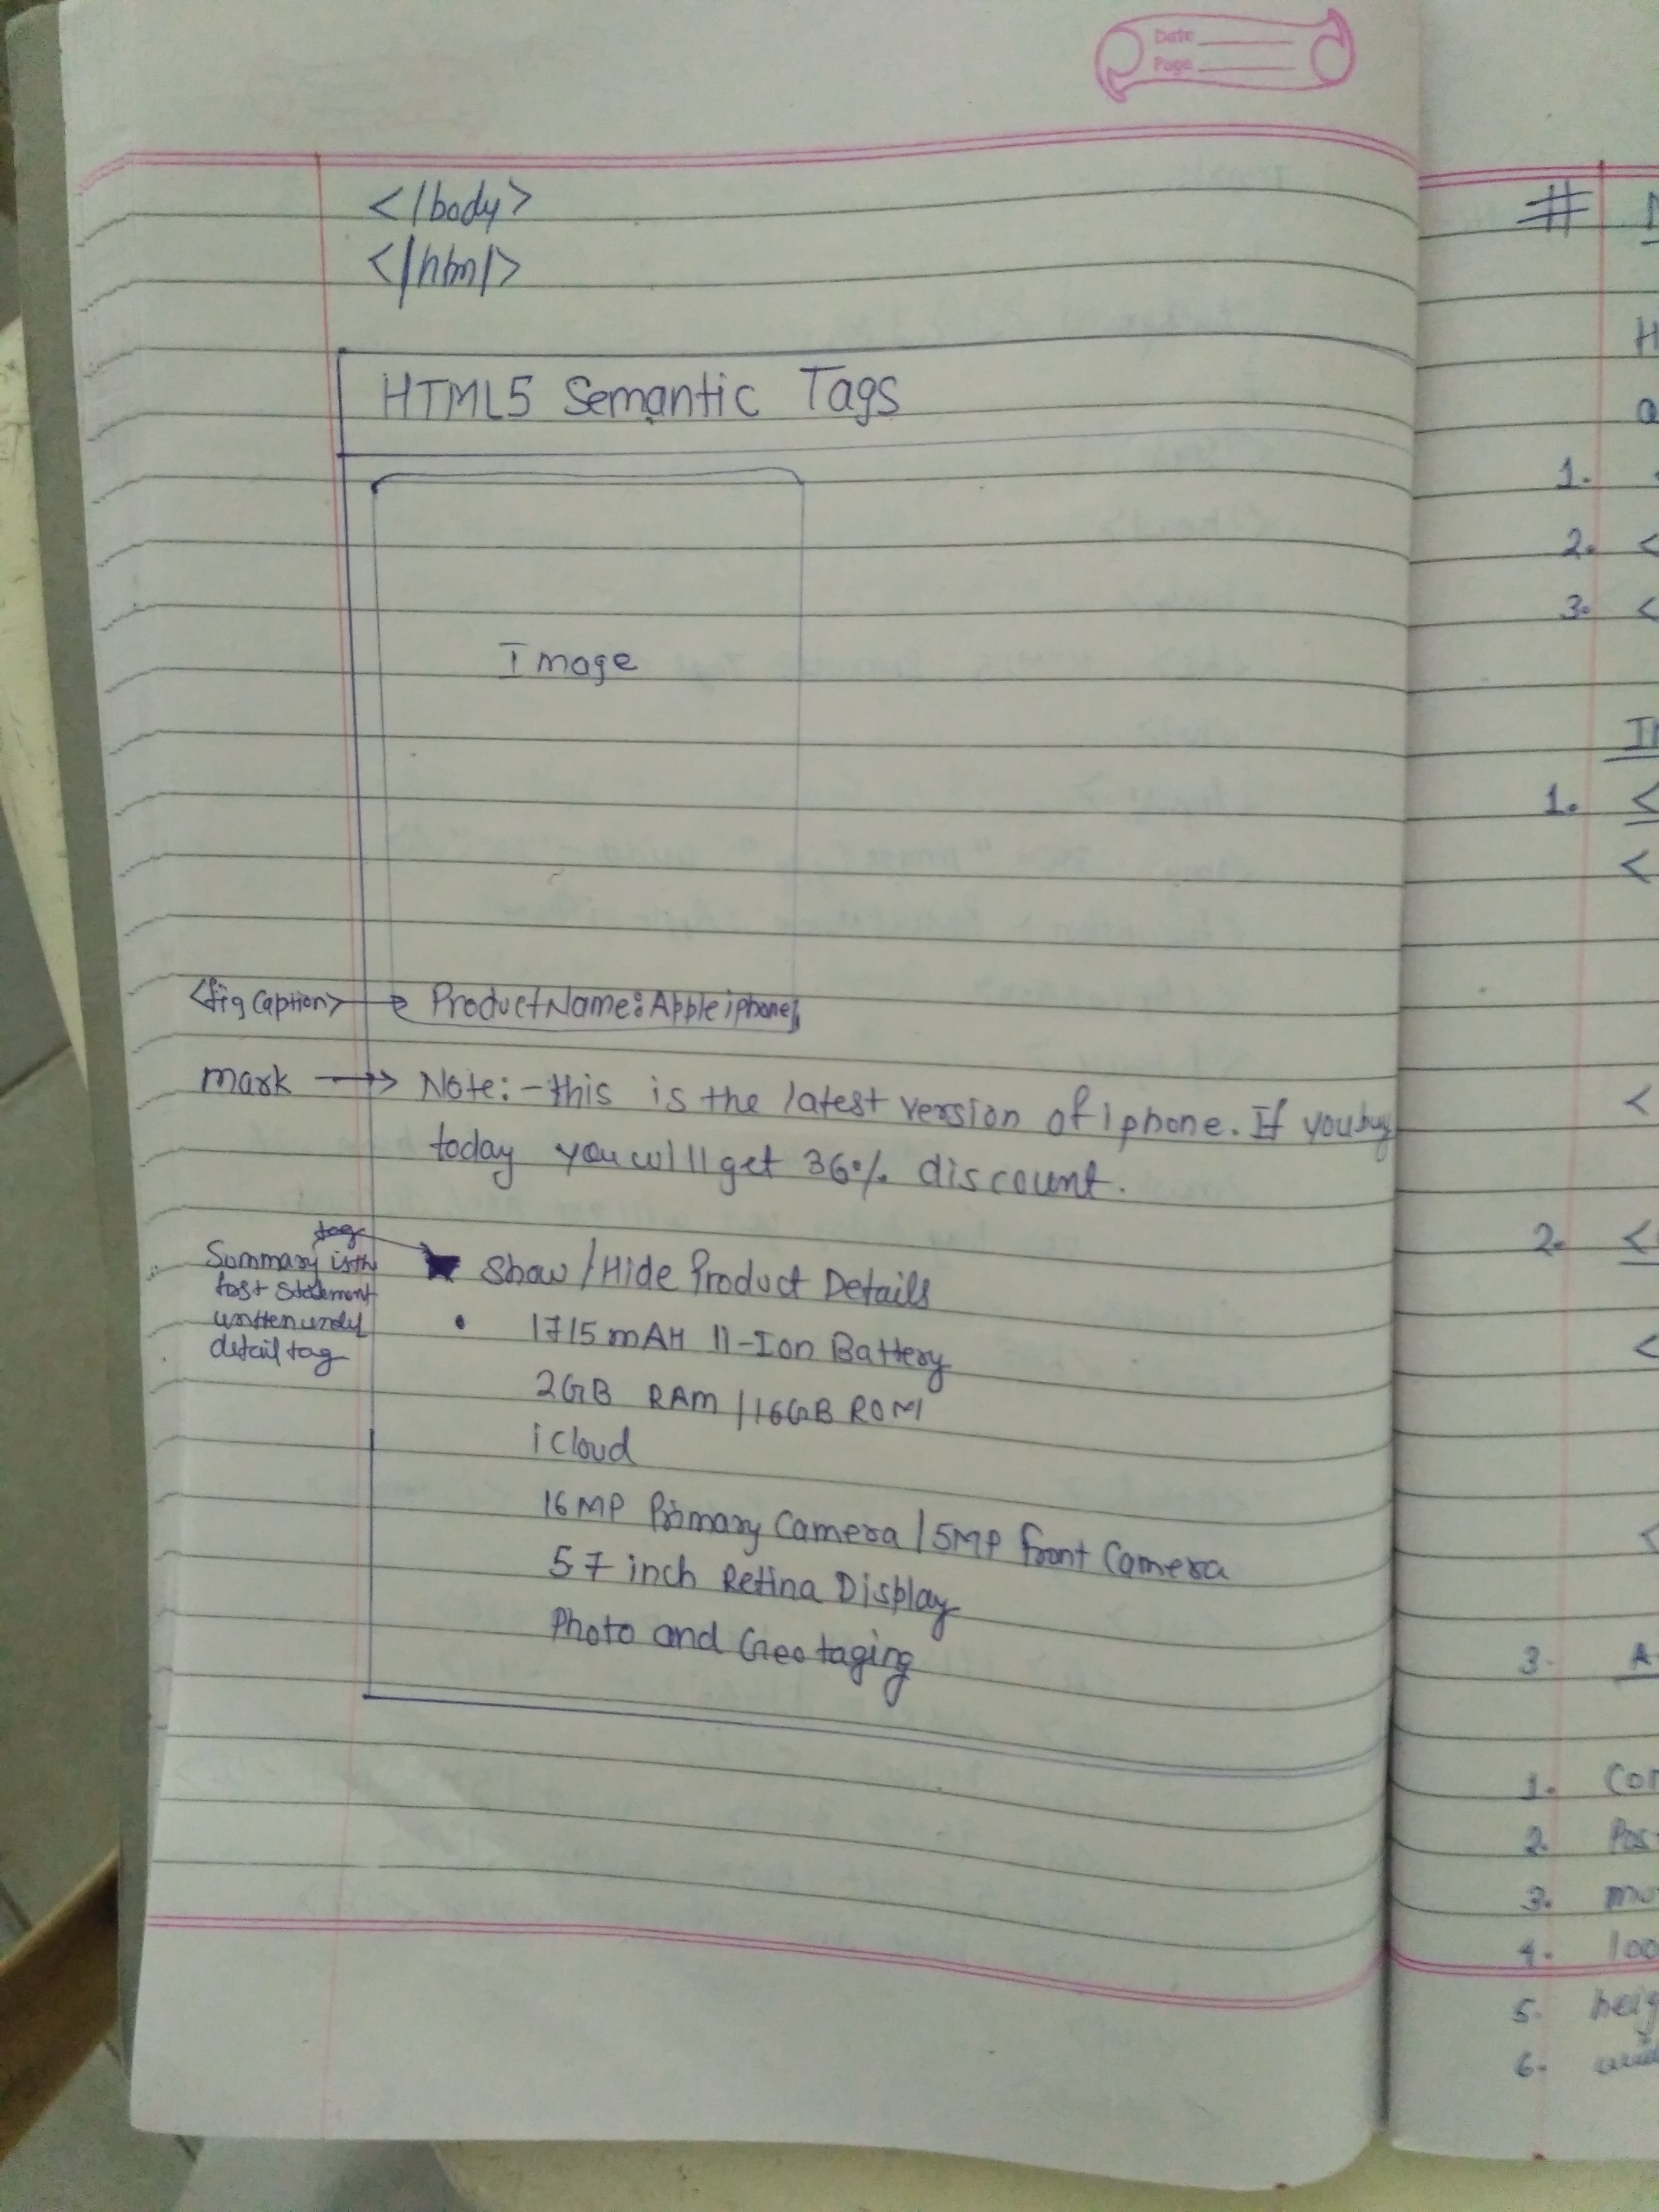 Date
Page
</body>
</html>
HTML5 Semantic Tags
Image
<fig Caption> → ProductName: Apple iphone
mark → Note:- this is the latest version of iphone. If you buy
today you will get 36% discount.
tag
Summary is the
statement
written under
detail tag
Show / Hide Product Details
• 1715 mAH 11-Ion Battery
2GB RAM / 16GB ROM
iCloud
16MP Primary Camera / 5MP front Camera
5.7 inch Retina Display
Photo and Geo taging
#
1.
2. <
3. <
1. <
<
<
2. <
<
<
3.
1.
2.
3.
4.
5.
6.